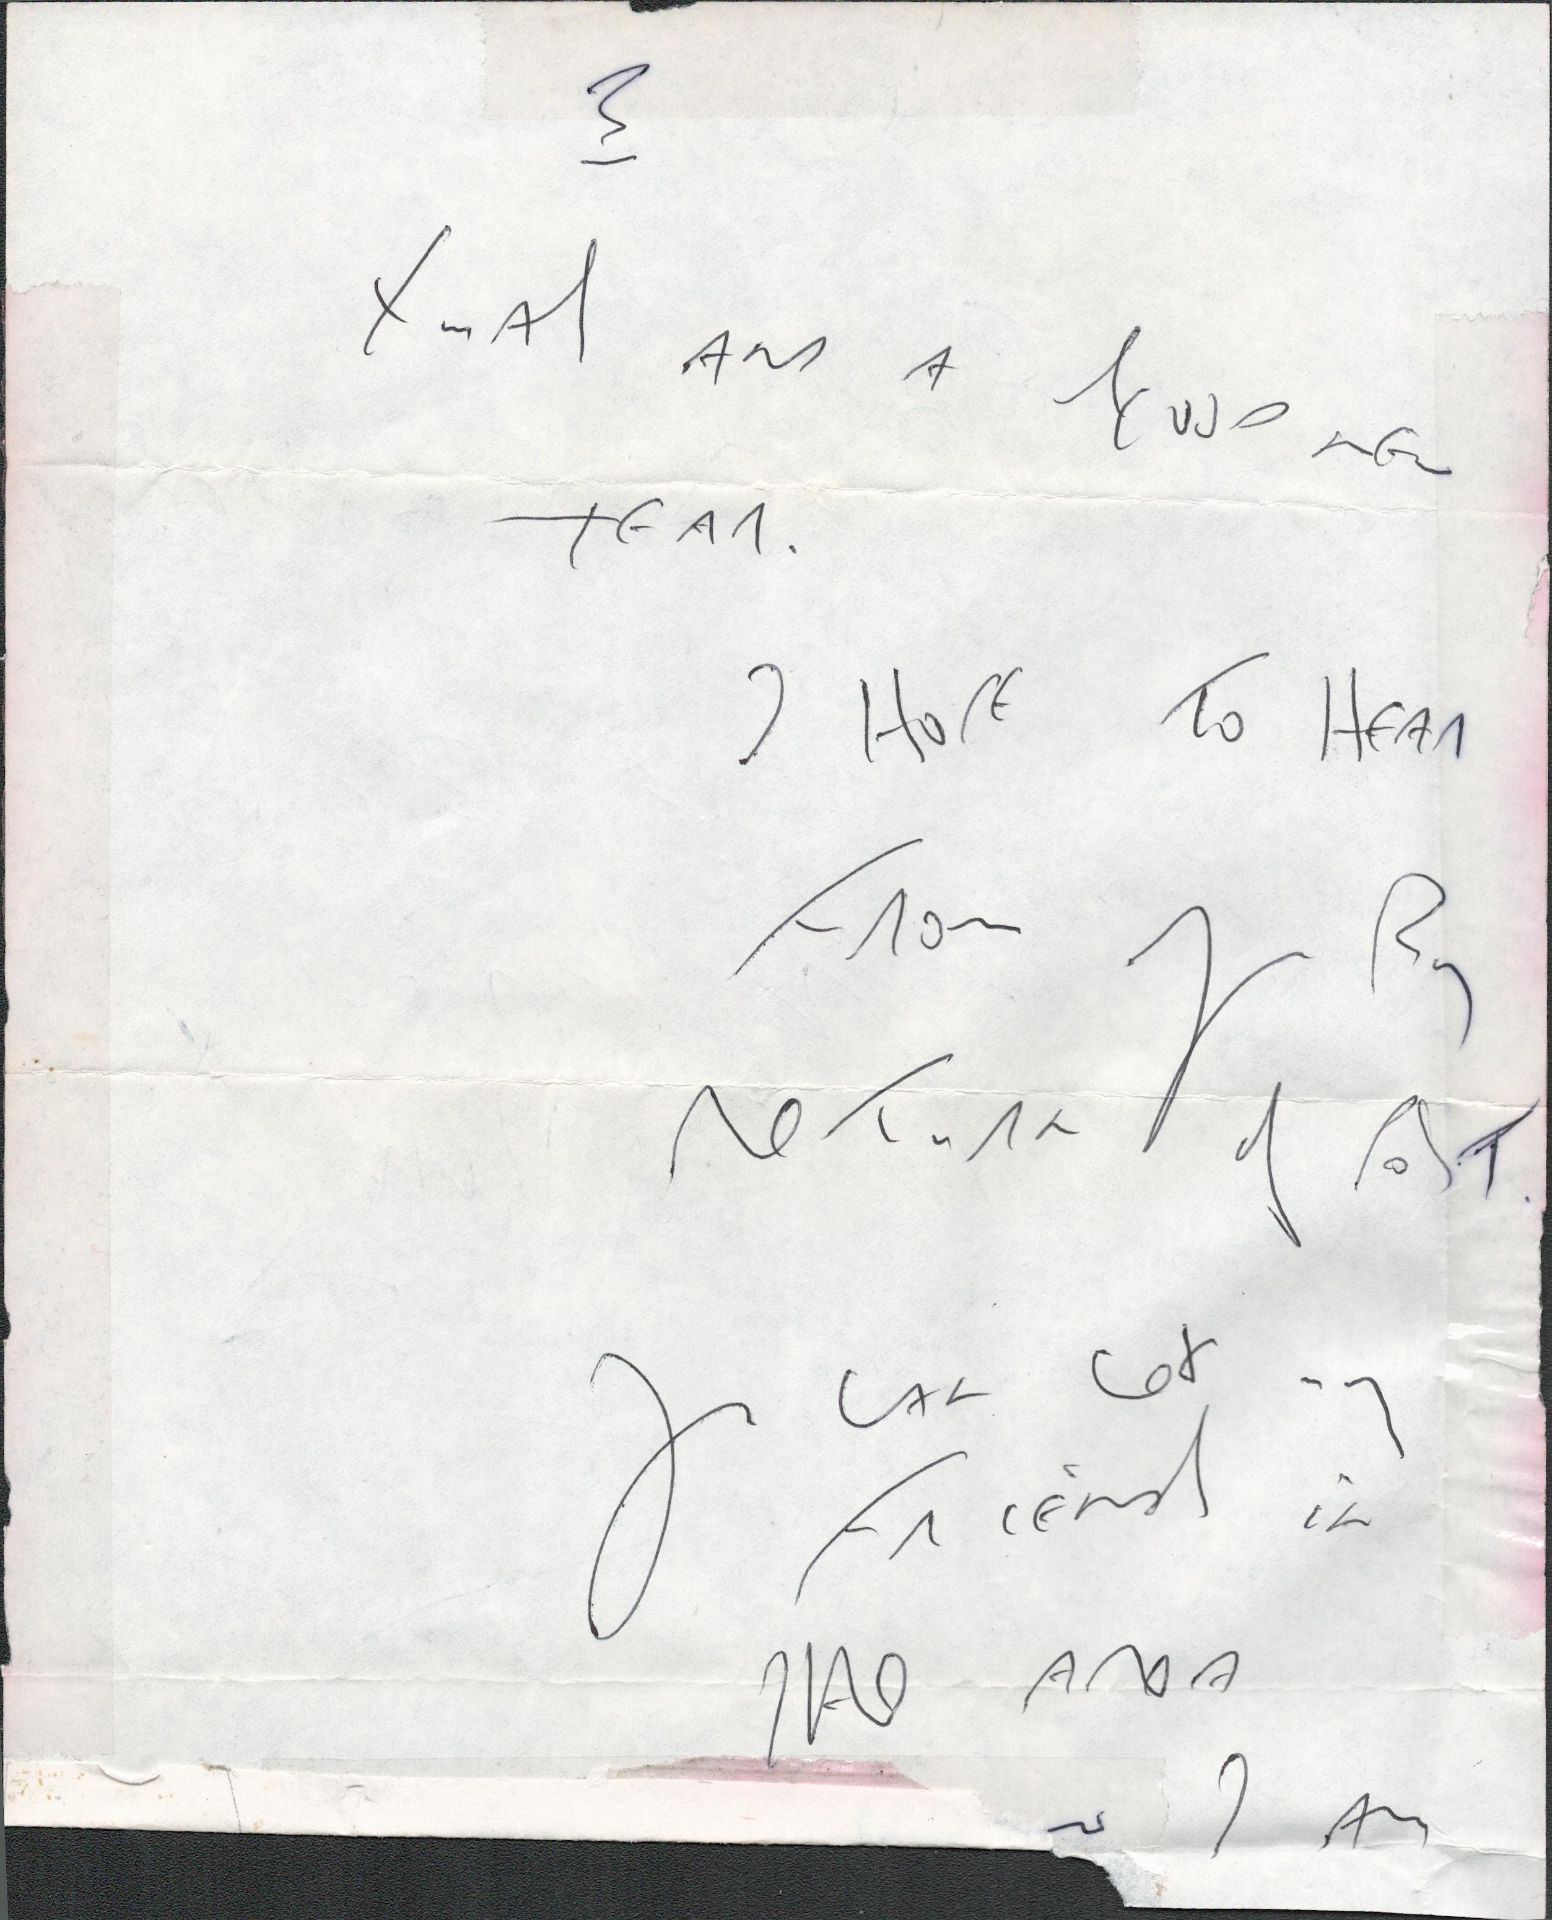 3
Xmas AND A GOOD NEW
YEAR.
I HOPE TO HEAR
FROM you By
ReTurn of PosT.
you CAN Get my
FRiENds in
THe AReA
I Am